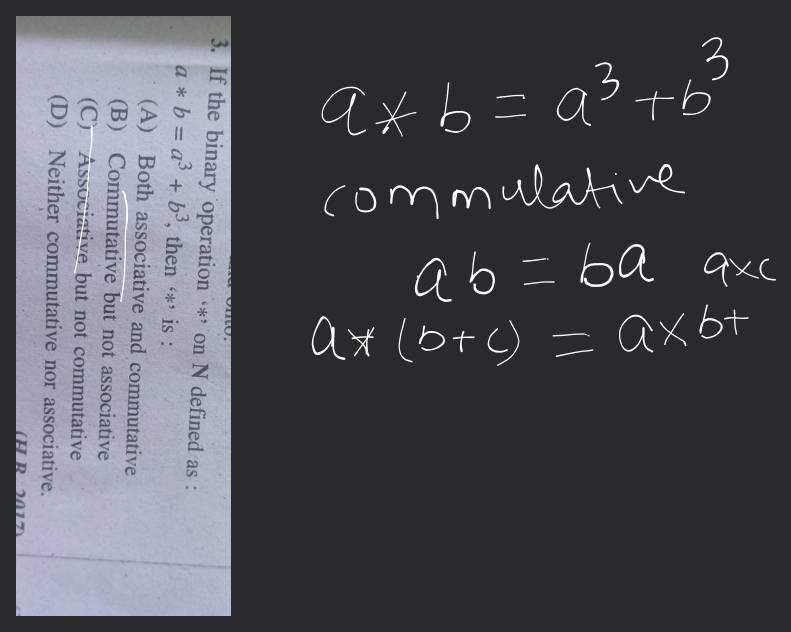 3. If the binary operation ‘*’ on N defined as :
a * b = a³ + b³, then ‘*’ is :
(A) Both associative and commutative
(B) Commutative but not associative
(C) Associative but not commutative
(D) Neither commutative nor associative.
(H.B. 2017)
a * b = a³ + b³
commulative
ab = ba axc
a* (b+c) = axb+